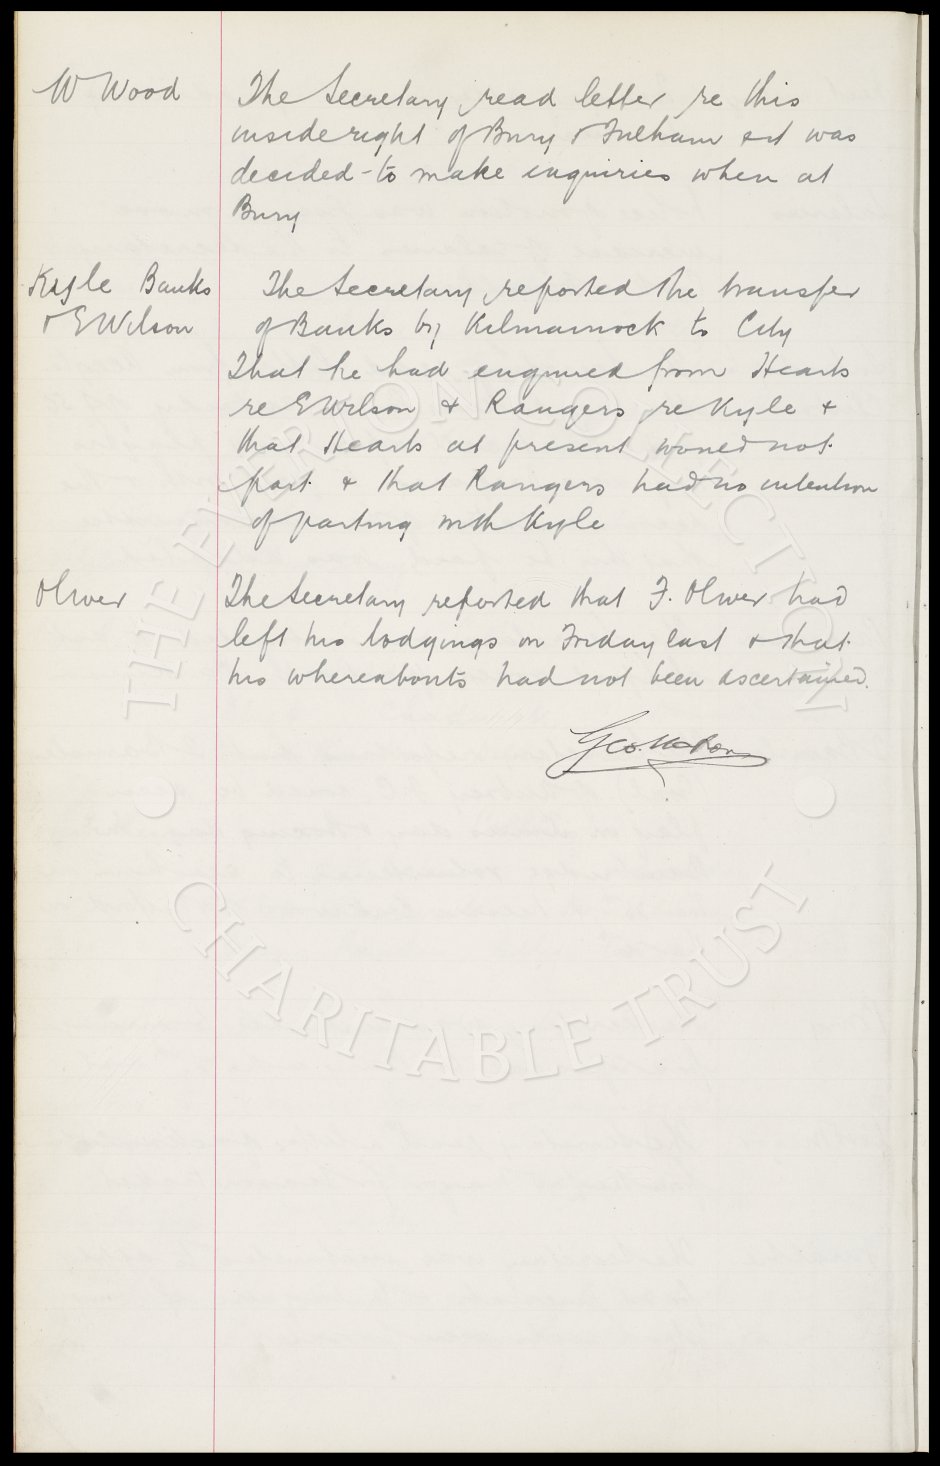 W Wood
The Secretary read letter re this
inside right of Bury & Fulham & it was
decided to make enquiries when at
Bury
Kyle Banks
& E Wilson
The Secretary reported the transfer
of Banks by Kilmarnock to City
That he had enquired from Hearts
re E Wilson & Rangers re Kyle &
that Hearts at present would not
part & that Rangers had no intention
of parting with Kyle
Oliver
The Secretary reported that F. Oliver had
left his lodgings on Friday last & that
his whereabouts had not been ascertained.
Geo. Mahon
THE EVERTON COLLECTION
CHARITABLE TRUST